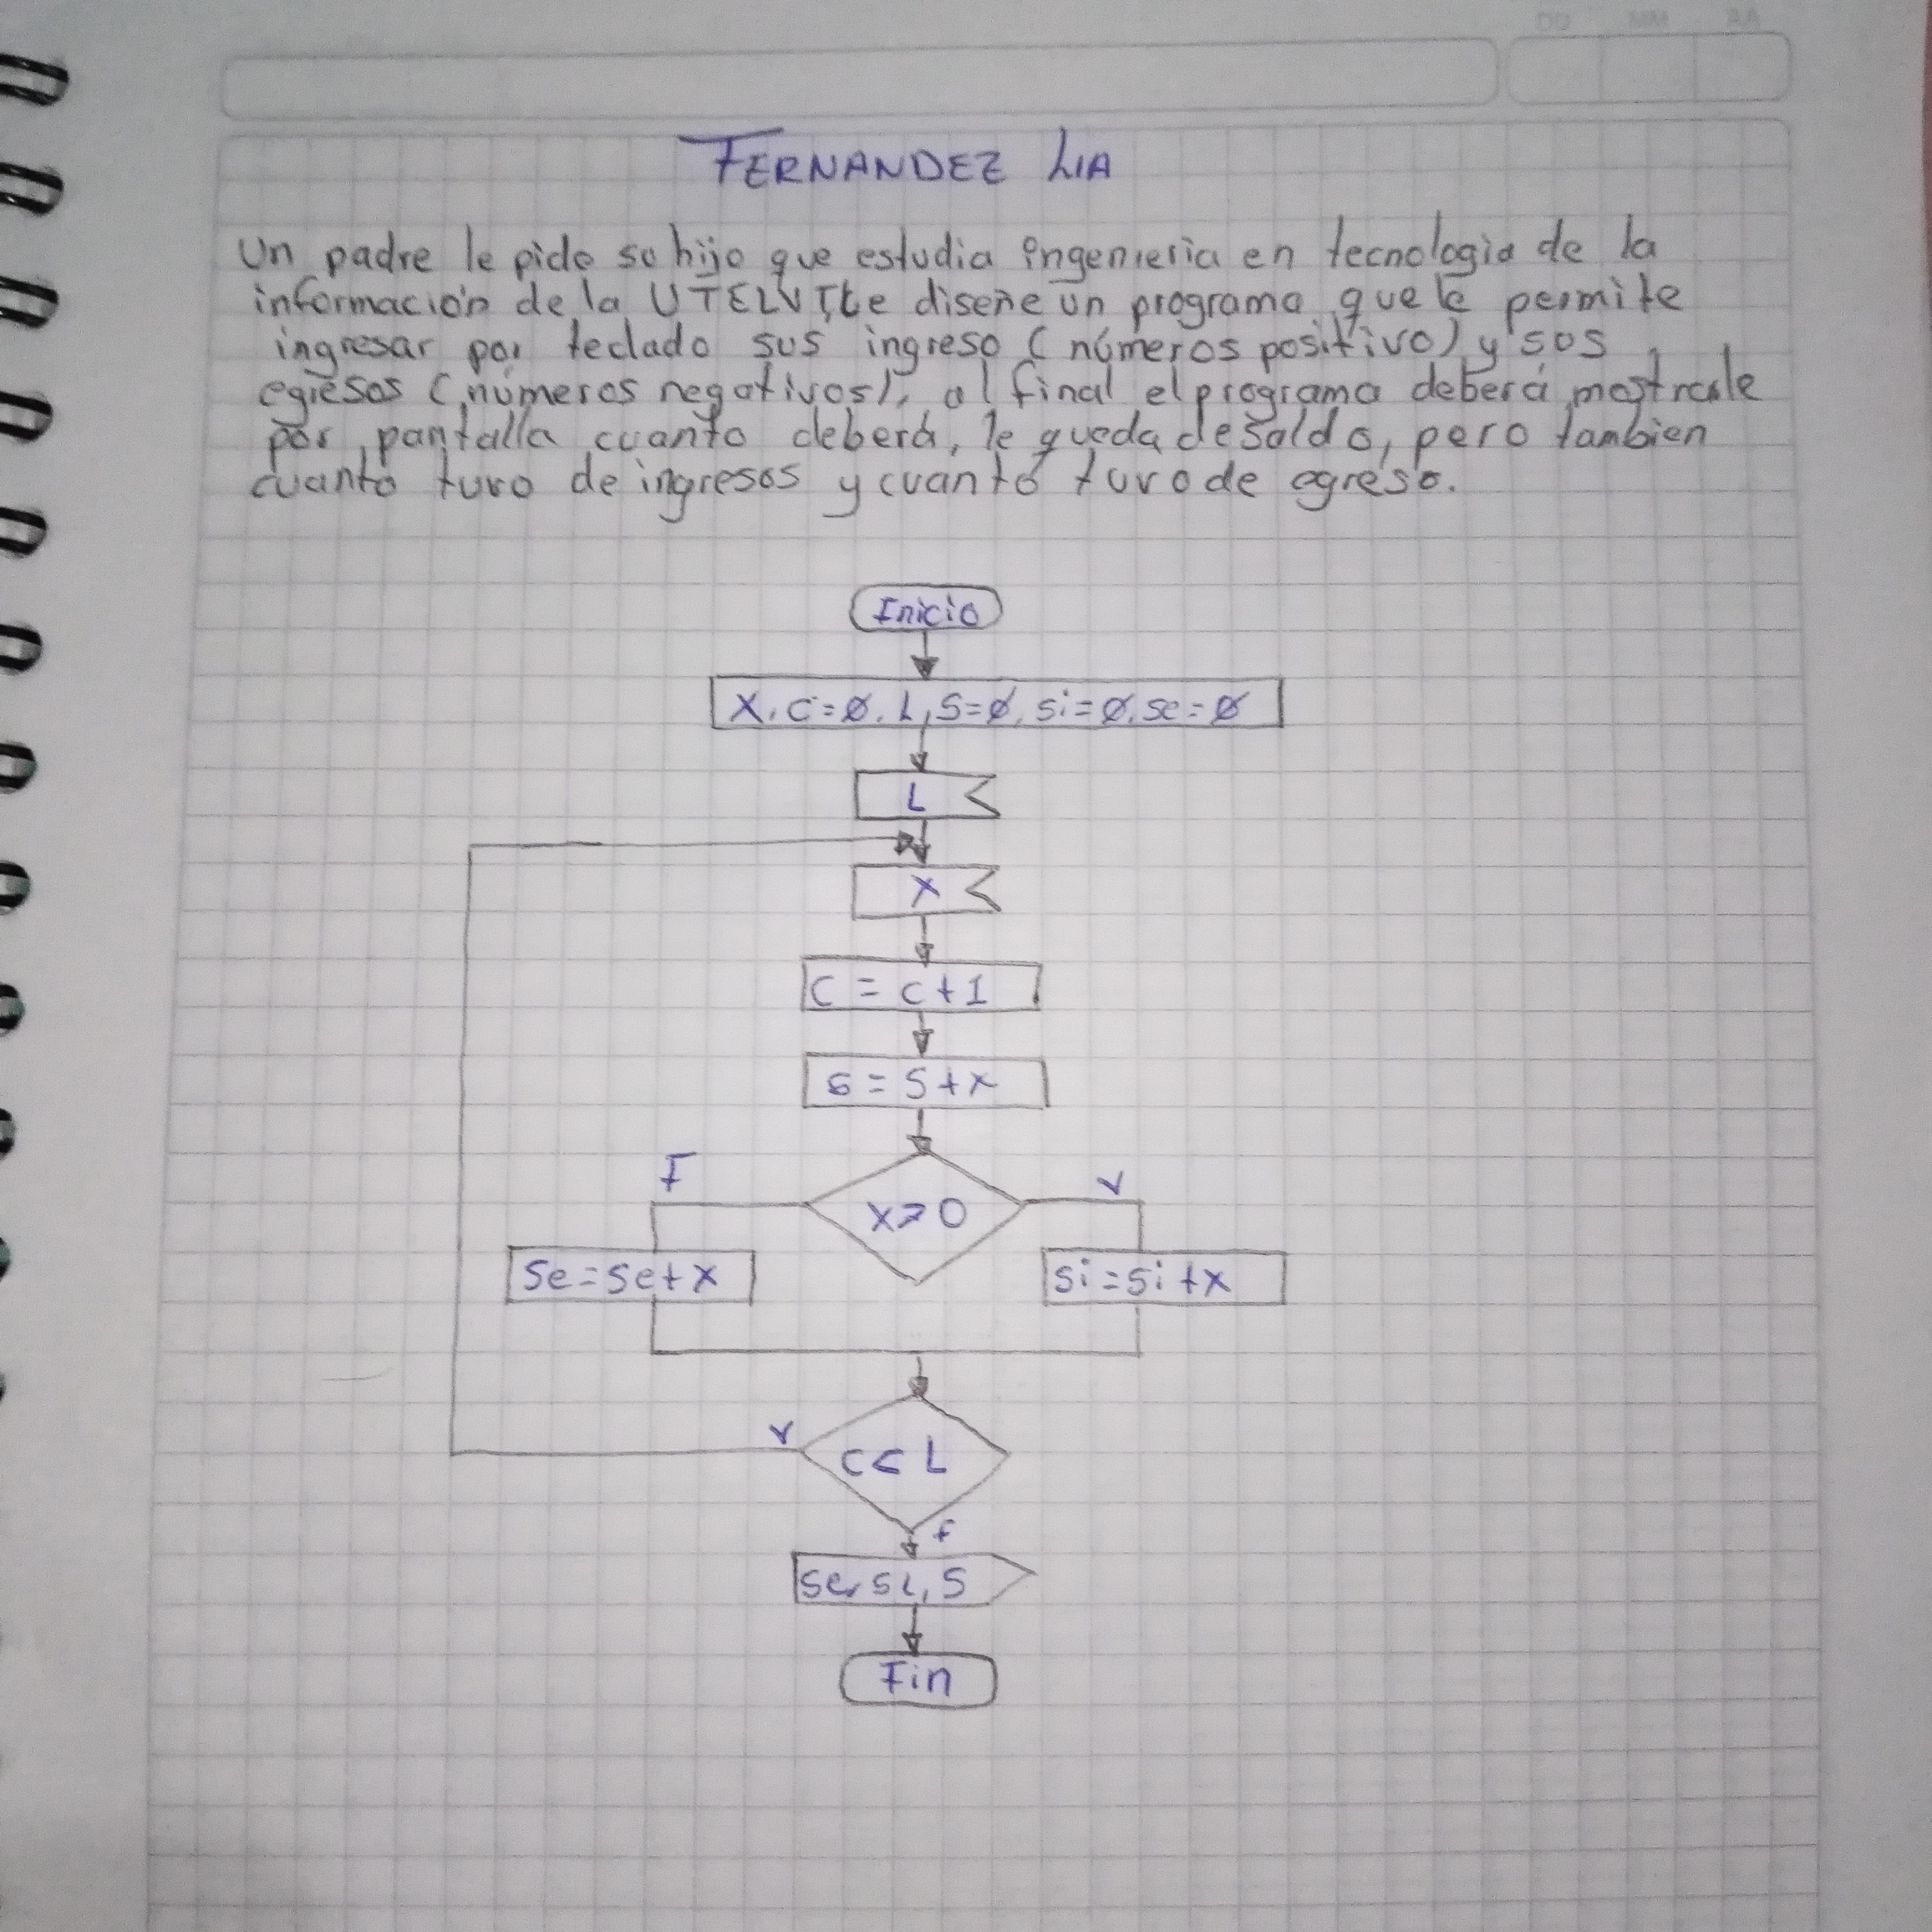 DD MM AA
FERNANDEZ LIA
Un padre le pide su hijo que estudia ingenieria en tecnologia de la
información de la UTELVT, le diseñe un programa que le permite
ingresar por teclado sus ingreso (números positivo) y sus
egresos (números negativos), al final el programa deberá mostrarle
por pantalla cuanto deberá, le queda de saldo, pero tambien
cuanto tuvo de ingresos y cuanto tuvo de egreso.
Inicio
X, C=0, L, S=0, si=0, se=0
L
X
C = C+1
S = S+x
F
V
X>0
Se=Se+x
Si=Si+x
V
C< L
f
Se, Si, S
Fin